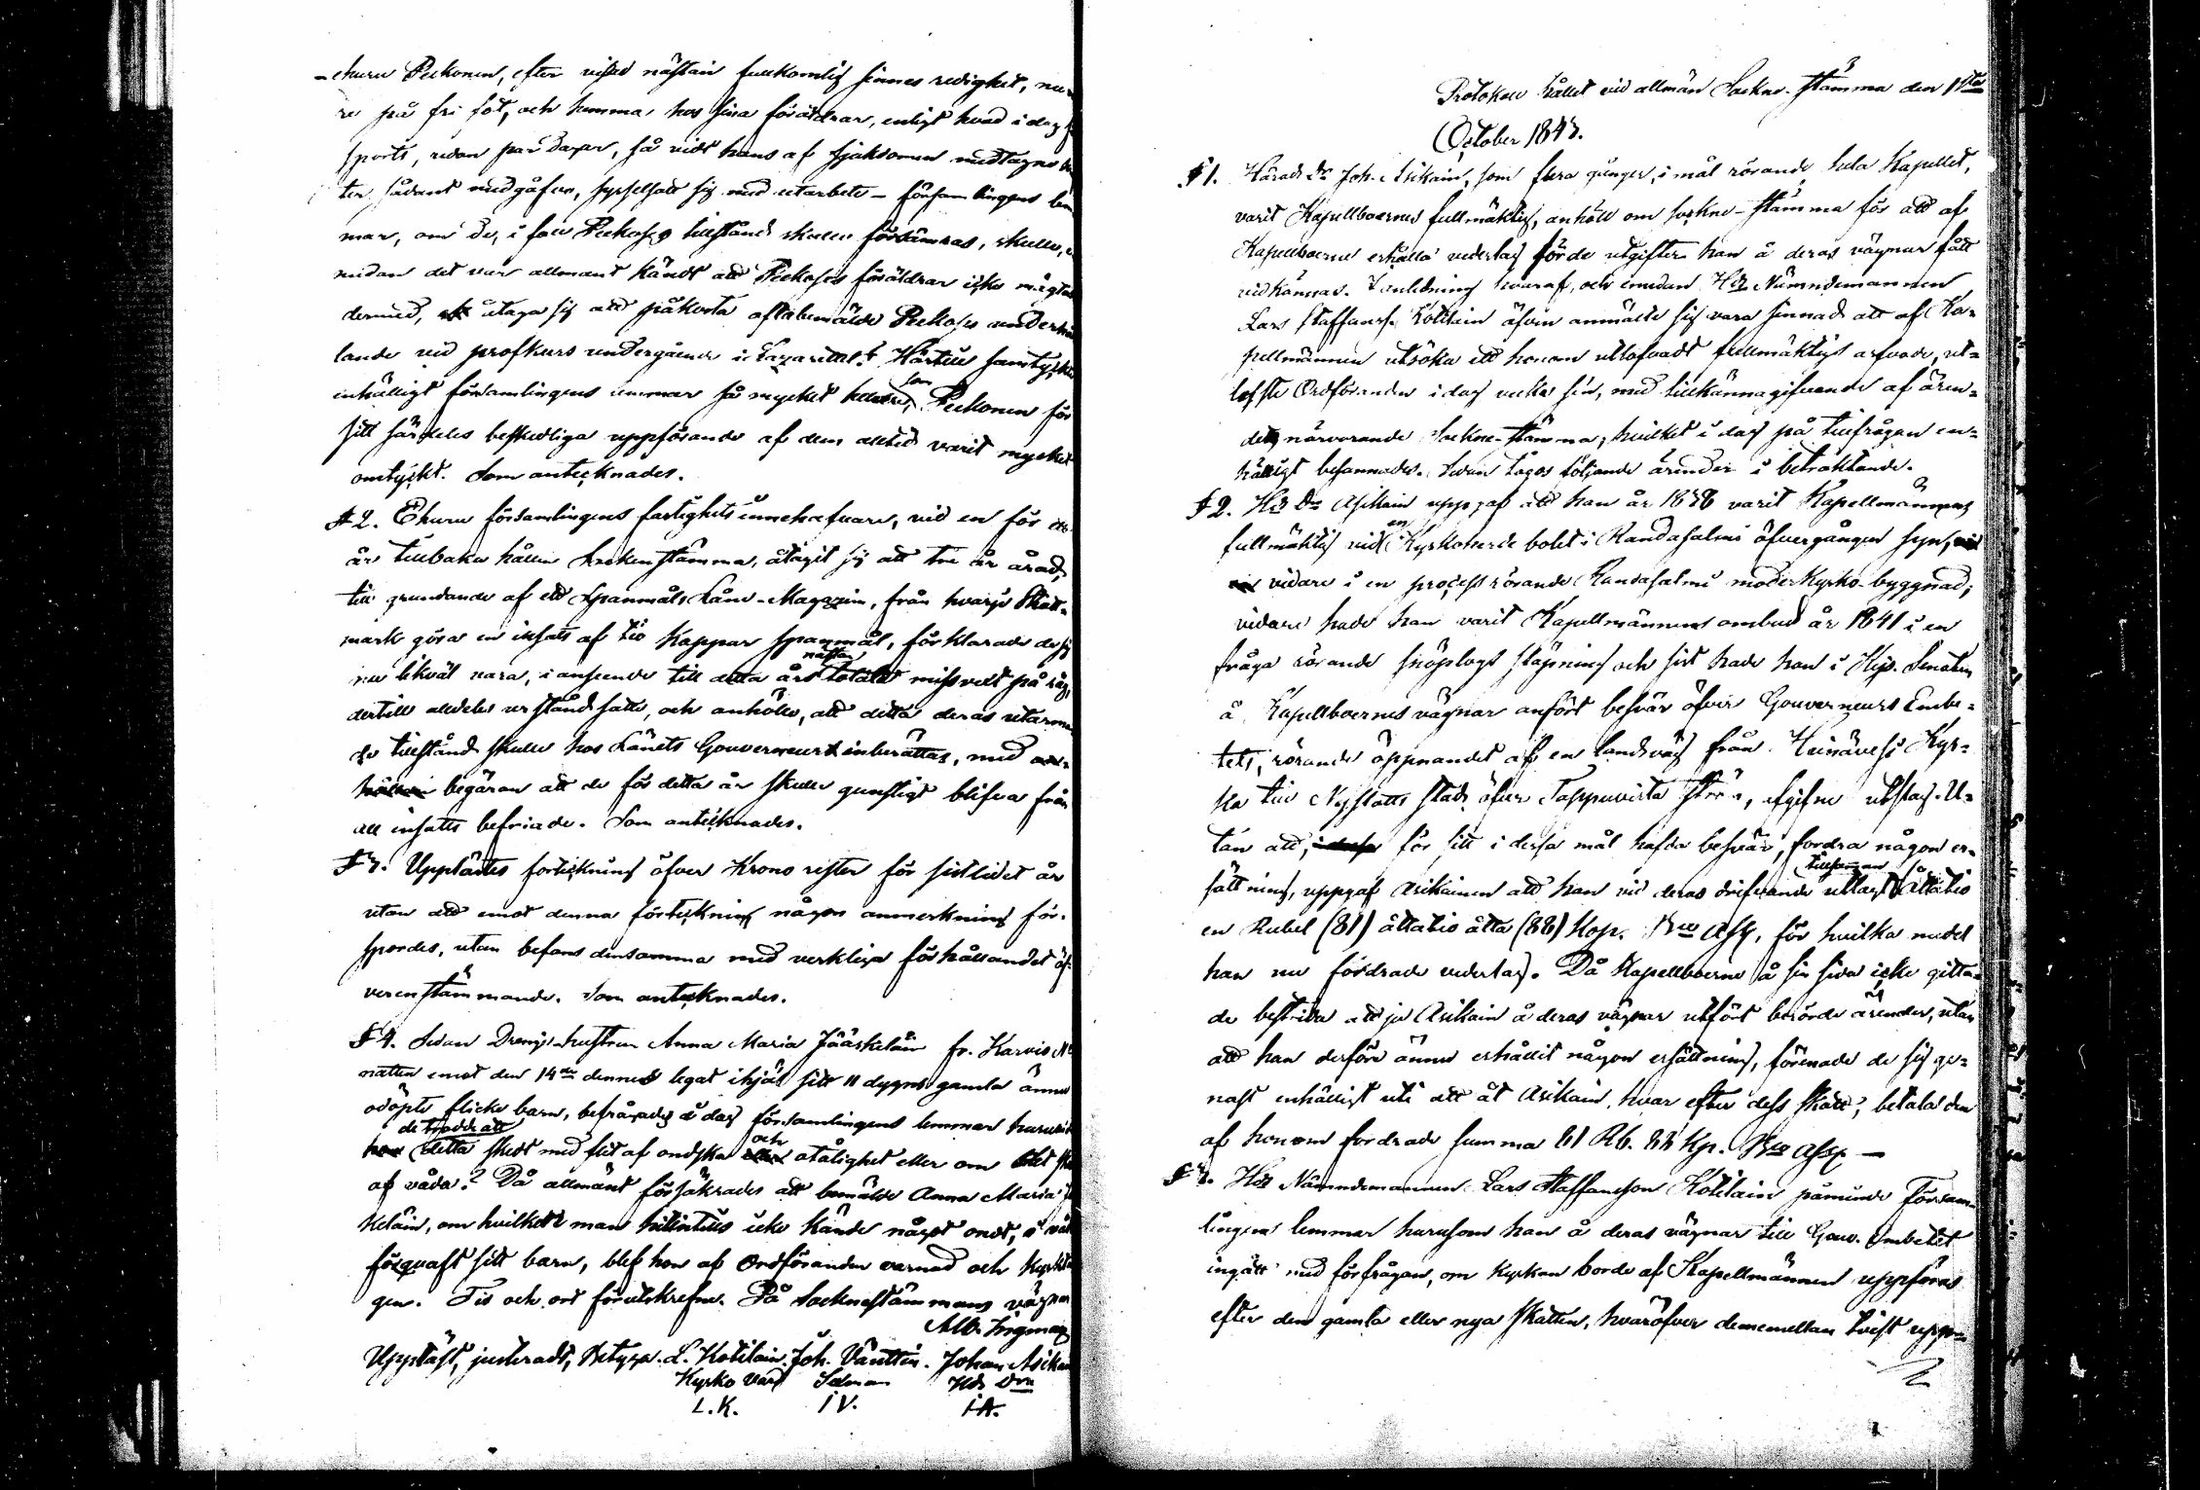 -ehuru Pekonen, efter visad nästan fullkomlig sinnes redighet, nu
re på fri fot, och hemma hos sina föräldrar, enligt hvad i dag
sports, redan par dagar, så vidt hans af sjukdomen medtagne
ter sådant medgåfvo, sysselsatt sig med utarbete - församlingens lem
mar, om de, i fall Pekoses tillstånd skulle försämras, skulle,
medan det var allmänt kändt att Pekoses föräldrar icke mägta
dermed, åtaga sig att påkosta oftabemälde Pekoses underhål
lande vid profkurs undergående i Lazarettet? Härtill samtyckte
enhälligt församlingens lemmar så mycket heldre, som Pekonen för
sitt särdeles beskedliga uppförande af dem alltid varit mycket
omtyckt. Som antecknades.
§ 2. Ehuru församlingens fastighets innehafvare, vid en för ett
år tillbaka hållen Sockenstämma, åtagit sig att tre år årad,
till grundande af ett Spanmåls Låne-Magazin, från hvarje Skatt-
mark göra en insatts af tio kappar spannmål, förklarade de sig
nu likväl vara, i anseende till detta års nästan totala missvext på råg,
dertill alldeles urståndsatte, och anhöllo, att detta deras utarma
de tillstånd skulle hos Länets Gouverneur inberättas, med
begäran att de för detta år skulle gunstigt blifva från
all insatts befriade. Som antecknades.
§ 3. Upplästes förteckning öfver Krono rester för sistlidet år
utan att emot denna förteckning någon anmerkning för-
spordes, utan befans densamma med verkliga förhållandet öf-
verensstämmande. Som antecknades.
§ 4. Sedan Drengs hustrun Anna Maria Jääskeläin fr. Karvio
natten emot den 14de dennes legat ihjäl sitt 11 dygns gamla ännu
odöpte flicke barn, befrågades i dag församlingens lemmar huruvida
de trodde att detta skedt med flit af ondska och otålighet eller om det
af våda? Då allmänt försäkrades att bemälde Anna Maria
keläin, om hvilken man hittintills icke kände något ondt, i våd
förqvaft sitt barn, blef hon af Ordföranden varnad och
gen. Tid och ort förutskrefne. På Sockenstämmans vägnar
Alb. Ingman
Uppläst, justeradt, betyga. L. Kotilain. Joh. Vänttin. Johan Asikain
Kyrko värd Sexman Hds Dm
L.K. IV. I.A.
Protokoll hållet vid allmän Sockne-stämma den 1sta
October 1843.
§ 1. Härads Dn Joh. Asikain, som flera gånger, i mål rörande hela Kapellet,
varit Kapellboernes fullmäktig, anhöll om sockne-stämma för att af
Kapellboerne erhålla vederlag för de utgifter han å deras vägnar fått
vidkännas. I anledning hvaraf, och emedan Hds Nämndemannen
Lars Staffanss. Kotilain äfven anmälte sig vara sinnad att af Ka-
pellmännen utsöka ett honom utlofvadt fullmäktigs arfvode, ut-
lyste Ordföranden i dag vecka sen, med tillkännagifvande af ären-
det, närvarande Sockne-stämma, hvilket i dag på tillfrågan en-
hälligt besannades. Sedan togos följande ärender i betraktande.
§ 2. Hds Dn Asikain uppgaf att han år 1838 varit Kapellmännens
fullmäktig vid en Kyrkoherde bolet i Randasalmi öfvergången syn,
vidare i en process rörande Randasalmi moderkyrko-byggnad;
vidare hade han varit Kapellmännens ombud år 1841 i en
fråga rörande snöplogs släpning och sist hade han i Kejs. Senaten
å Kapellboernes vägnar anfört besvär öfver Gouverneurs Embe-
tets, rörande öppnandet af en landsväg från Heinävesi Kyr-
ka till Nyslotts stad öfver Tappuvirta ström, afgifne utslag. U-
tan att, för sitt i dessa mål hafda besvär, fordra någon er-
sättning, uppgaf Asikainen att han vid deras drifvande utlagt tillsamman åttatio
en Rubel (81) åttatio åtta (88) Kop. Bco Assg, för hvilka medel
han nu fordrade vederlag. Då Kapellboerne å sin sida icke gitta-
de bestrida att ju Asikain å deras vägnar utfört berörde ärender, utan
att han derföre ännu erhållit någon ersättning, förenade de sig ge-
nast enhälligt uti att åt Asikain, hvar efter dess skatt, betala den
af honom fordrade summa 81 Rb. 88 Kp. Bco Assg. —
§ 3. Hds Nämndemannen Lars Staffansson Kotilain påminde Försam-
lingens lemmar hurusom han å deras vägnar till Gouv. Embetet
ingått med förfrågan, om Kyrkan borde af Kapellmännen uppföras
efter den gamla eller nya skatten, hvaröfver dememellan tvist upp-